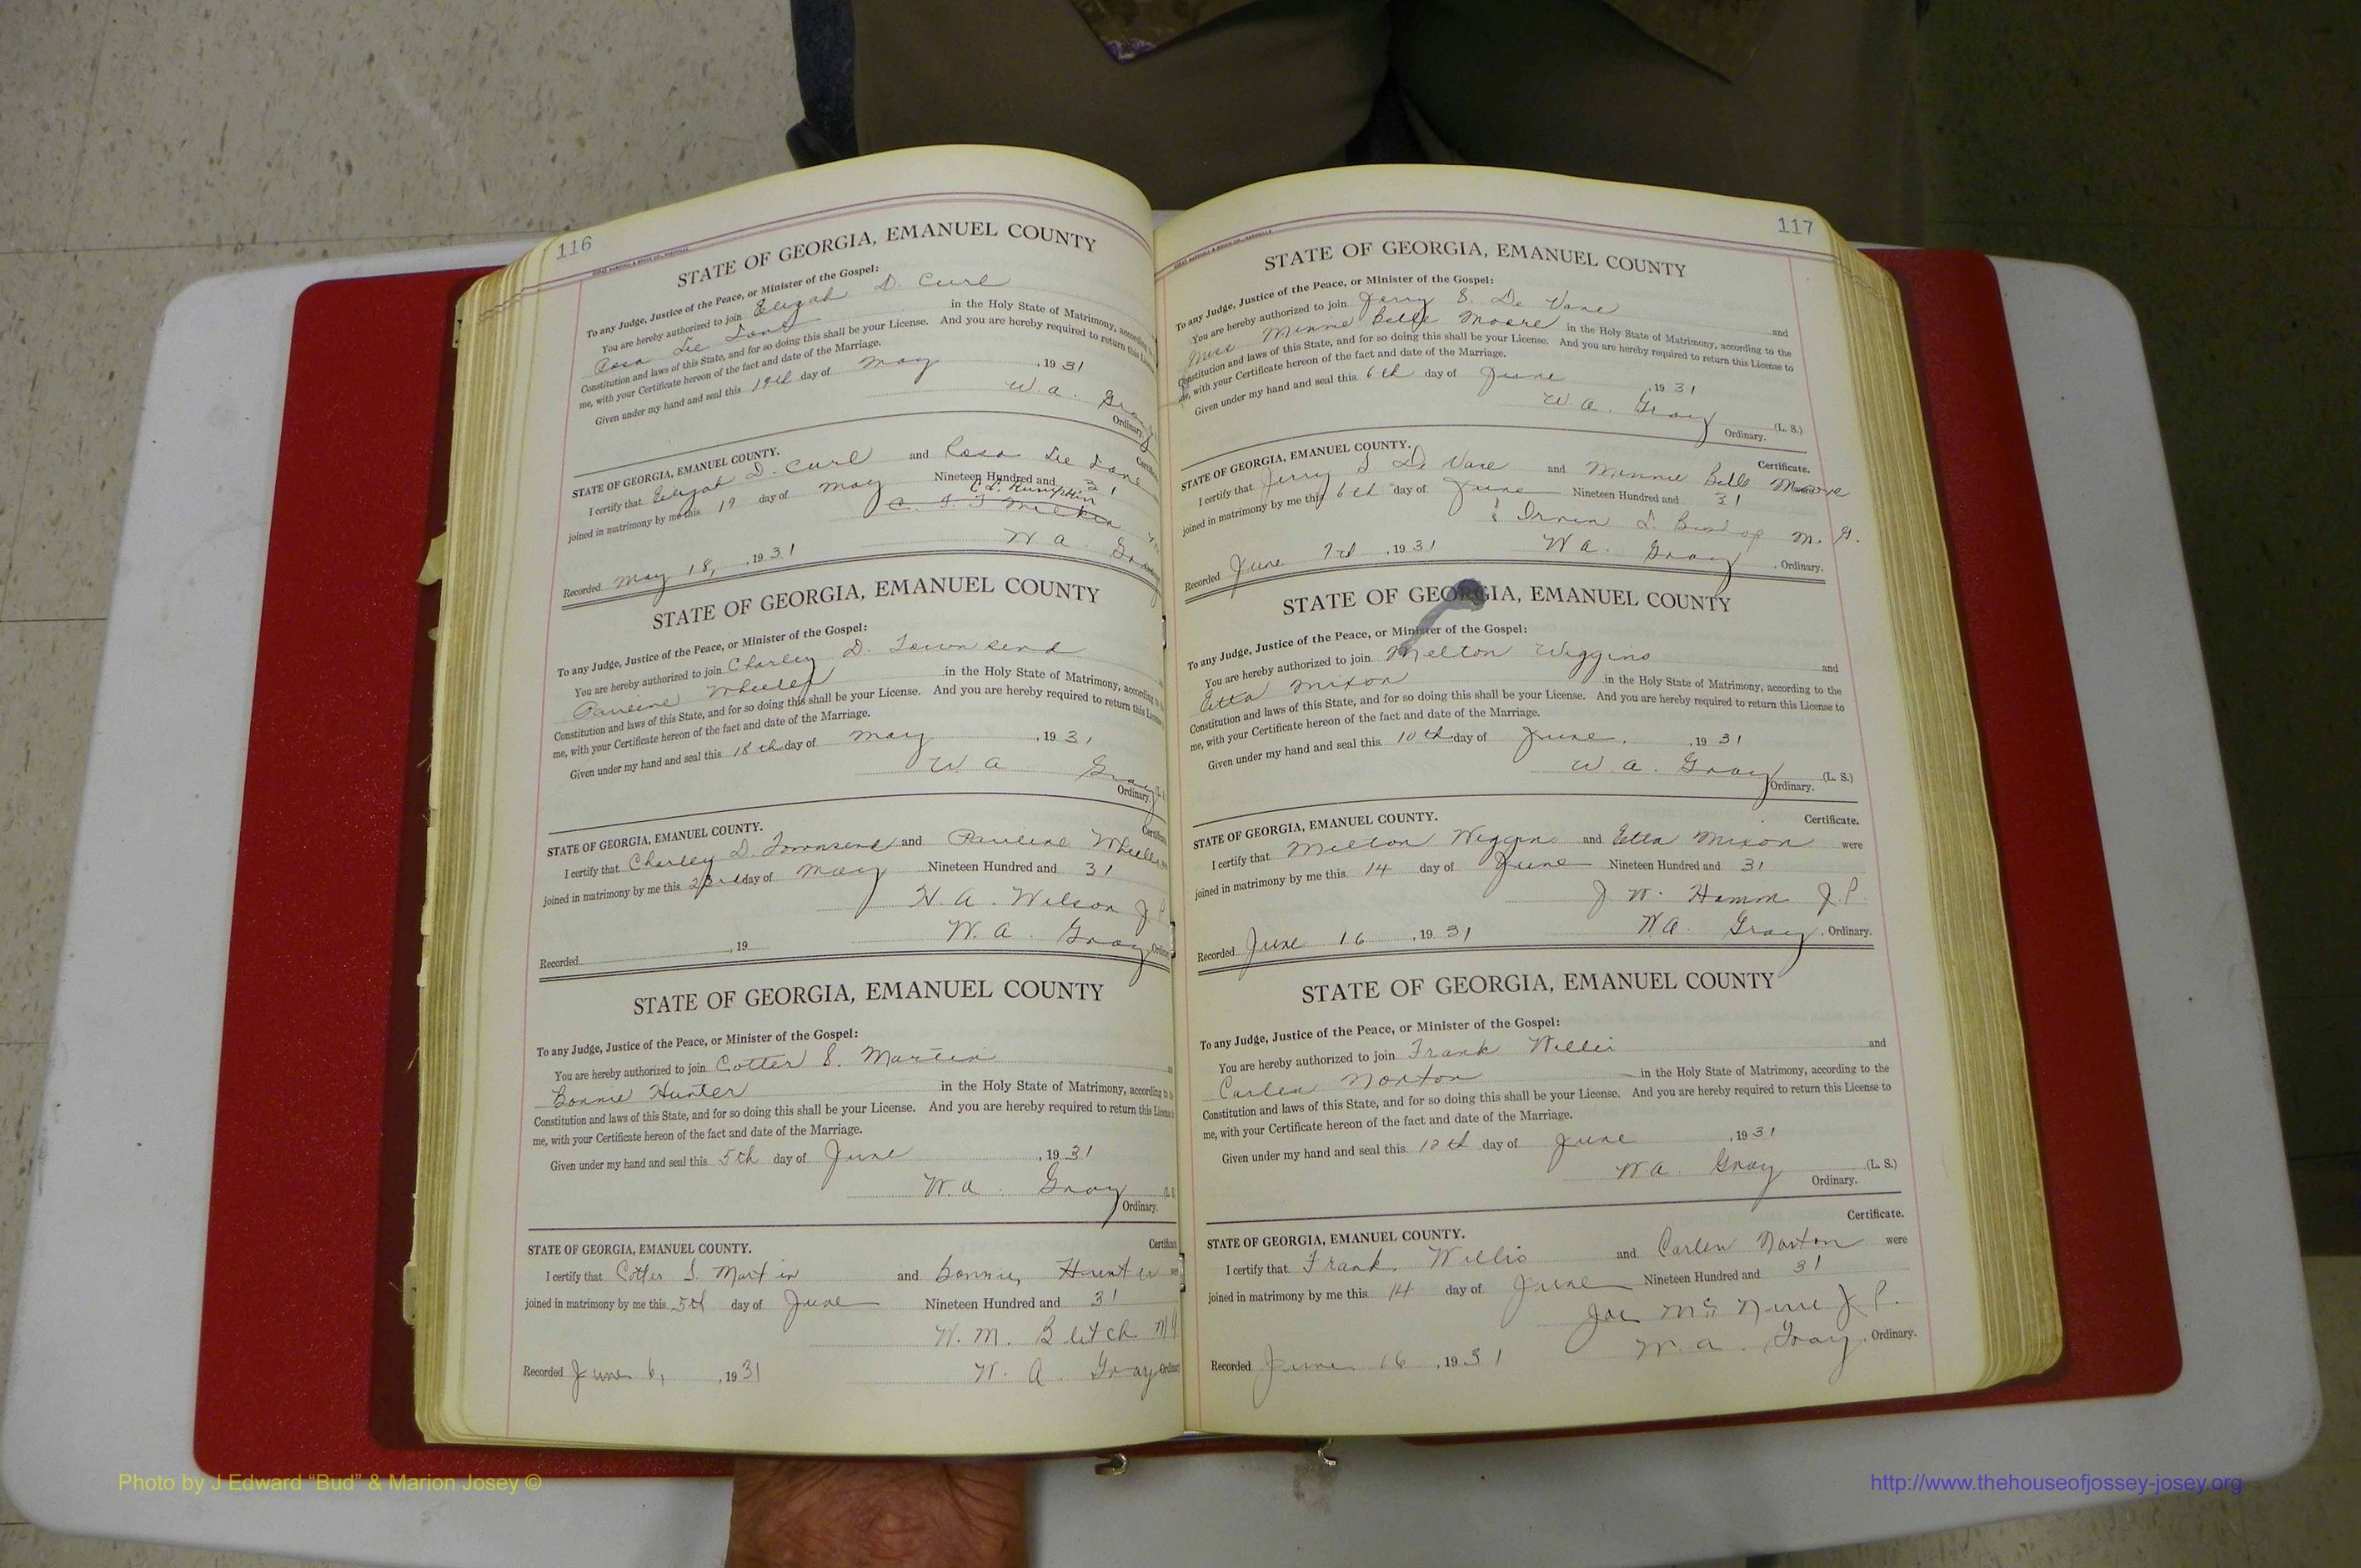 116
STATE OF GEORGIA, EMANUEL COUNTY
To any Judge, Justice of the Peace, or Minister of the Gospel:
You are hereby authorized to join Elizah D. Curl
Rosa Lee Lane in the Holy State of Matrimony, according
Constitution and laws of this State, and for so doing this shall be your License. And you are hereby required to return this License
me, with your Certificate hereon of the fact and date of the Marriage.
Given under my hand and seal this day of May , 19 31
W. A. Gray
Ordinary.
STATE OF GEORGIA, EMANUEL COUNTY.
I certify that Elizah D. Curl and Rosa Lee Lane
joined in matrimony by me this 17 day of May Nineteen Hundred and 31
W A. Gray
Recorded May 18, , 19 31
STATE OF GEORGIA, EMANUEL COUNTY
To any Judge, Justice of the Peace, or Minister of the Gospel:
You are hereby authorized to join Charley D. Townsend
Pauline Wheeler in the Holy State of Matrimony, according
Constitution and laws of this State, and for so doing this shall be your License. And you are hereby required to return this License
me, with your Certificate hereon of the fact and date of the Marriage.
Given under my hand and seal this 18th day of May , 19 31
W A Gray
Ordinary.
Certificate
STATE OF GEORGIA, EMANUEL COUNTY.
I certify that Charley D. Townsend and Pauline Wheeler
joined in matrimony by me this 23rd day of May Nineteen Hundred and 31
H. A. Wilson J P
W. A. Gray
Recorded , 19
STATE OF GEORGIA, EMANUEL COUNTY
To any Judge, Justice of the Peace, or Minister of the Gospel:
You are hereby authorized to join Cotter S. Martin
Bonnie Hunter in the Holy State of Matrimony, according to
Constitution and laws of this State, and for so doing this shall be your License. And you are hereby required to return this License
me, with your Certificate hereon of the fact and date of the Marriage.
Given under my hand and seal this 5th day of June , 19 31
W. A. Gray (L. S
Ordinary.
Certificate
STATE OF GEORGIA, EMANUEL COUNTY.
I certify that Cotter S. Martin and Bonnie Hunter
joined in matrimony by me this 5th day of June Nineteen Hundred and 31
W. M. Blitch M G
Recorded June 6, , 19 31 W. A. Gray Ordinary
117
STATE OF GEORGIA, EMANUEL COUNTY
To any Judge, Justice of the Peace, or Minister of the Gospel:
You are hereby authorized to join Jerry S. De Vane and
Miss Minnie Belle Moore in the Holy State of Matrimony, according to the
Constitution and laws of this State, and for so doing this shall be your License. And you are hereby required to return this License to
me, with your Certificate hereon of the fact and date of the Marriage.
Given under my hand and seal this 6th day of June , 19 31
W. A. Gray (L. S.)
Ordinary.
Certificate.
STATE OF GEORGIA, EMANUEL COUNTY.
I certify that Jerry S De Vane and Minnie Belle Moore
joined in matrimony by me this 6th day of June Nineteen Hundred and 31
L. Bishop M. G.
Recorded June , 19 31 W A. Gray . Ordinary.
STATE OF GEORGIA, EMANUEL COUNTY
To any Judge, Justice of the Peace, or Minister of the Gospel:
You are hereby authorized to join Melton Wiggins and
Etta Mixon in the Holy State of Matrimony, according to the
Constitution and laws of this State, and for so doing this shall be your License. And you are hereby required to return this License to
me, with your Certificate hereon of the fact and date of the Marriage.
Given under my hand and seal this 10th day of June , 19 31
W. A. Gray (L. S.)
Ordinary.
Certificate.
STATE OF GEORGIA, EMANUEL COUNTY.
I certify that Melton Wiggins and Etta Mixon were
joined in matrimony by me this 14 day of June Nineteen Hundred and 31
J W. Hamm J.P.
Recorded June 16 , 19 31 W A. Gray , Ordinary.
STATE OF GEORGIA, EMANUEL COUNTY
To any Judge, Justice of the Peace, or Minister of the Gospel:
You are hereby authorized to join Frank Willis and
Carlen Norton in the Holy State of Matrimony, according to the
Constitution and laws of this State, and for so doing this shall be your License. And you are hereby required to return this License to
me, with your Certificate hereon of the fact and date of the Marriage.
Given under my hand and seal this day of June , 19 31
W. A. Gray (L. S.)
Ordinary.
Certificate.
STATE OF GEORGIA, EMANUEL COUNTY.
I certify that Frank Willis and Carlen Norton were
joined in matrimony by me this 14 day of June Nineteen Hundred and 31
Joe J P.
Recorded June 16 , 19 31 W. A. Gray , Ordinary.
Photo by J Edward “Bud” & Marion Josey ©
http://www.thehouseofjossey-josey.org